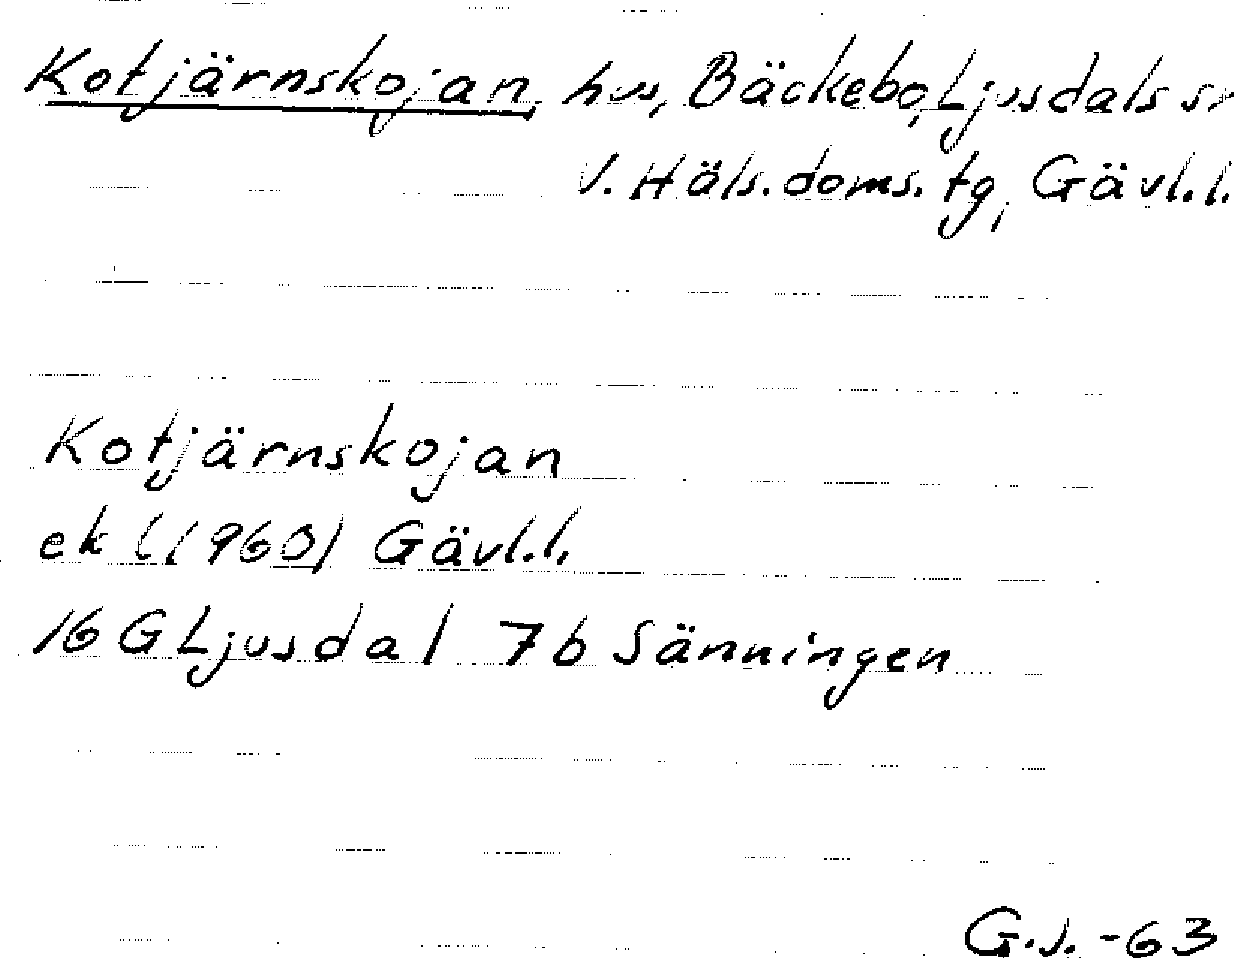 Kotjärnskojan, hus, Bäckebo, Ljusdals sn
V. Häls. doms. tg, Gävl. l.
Kotjärnskojan
ek l (1960) Gävl. l.
16 G Ljusdal 7b Sänningen
G.J. -63